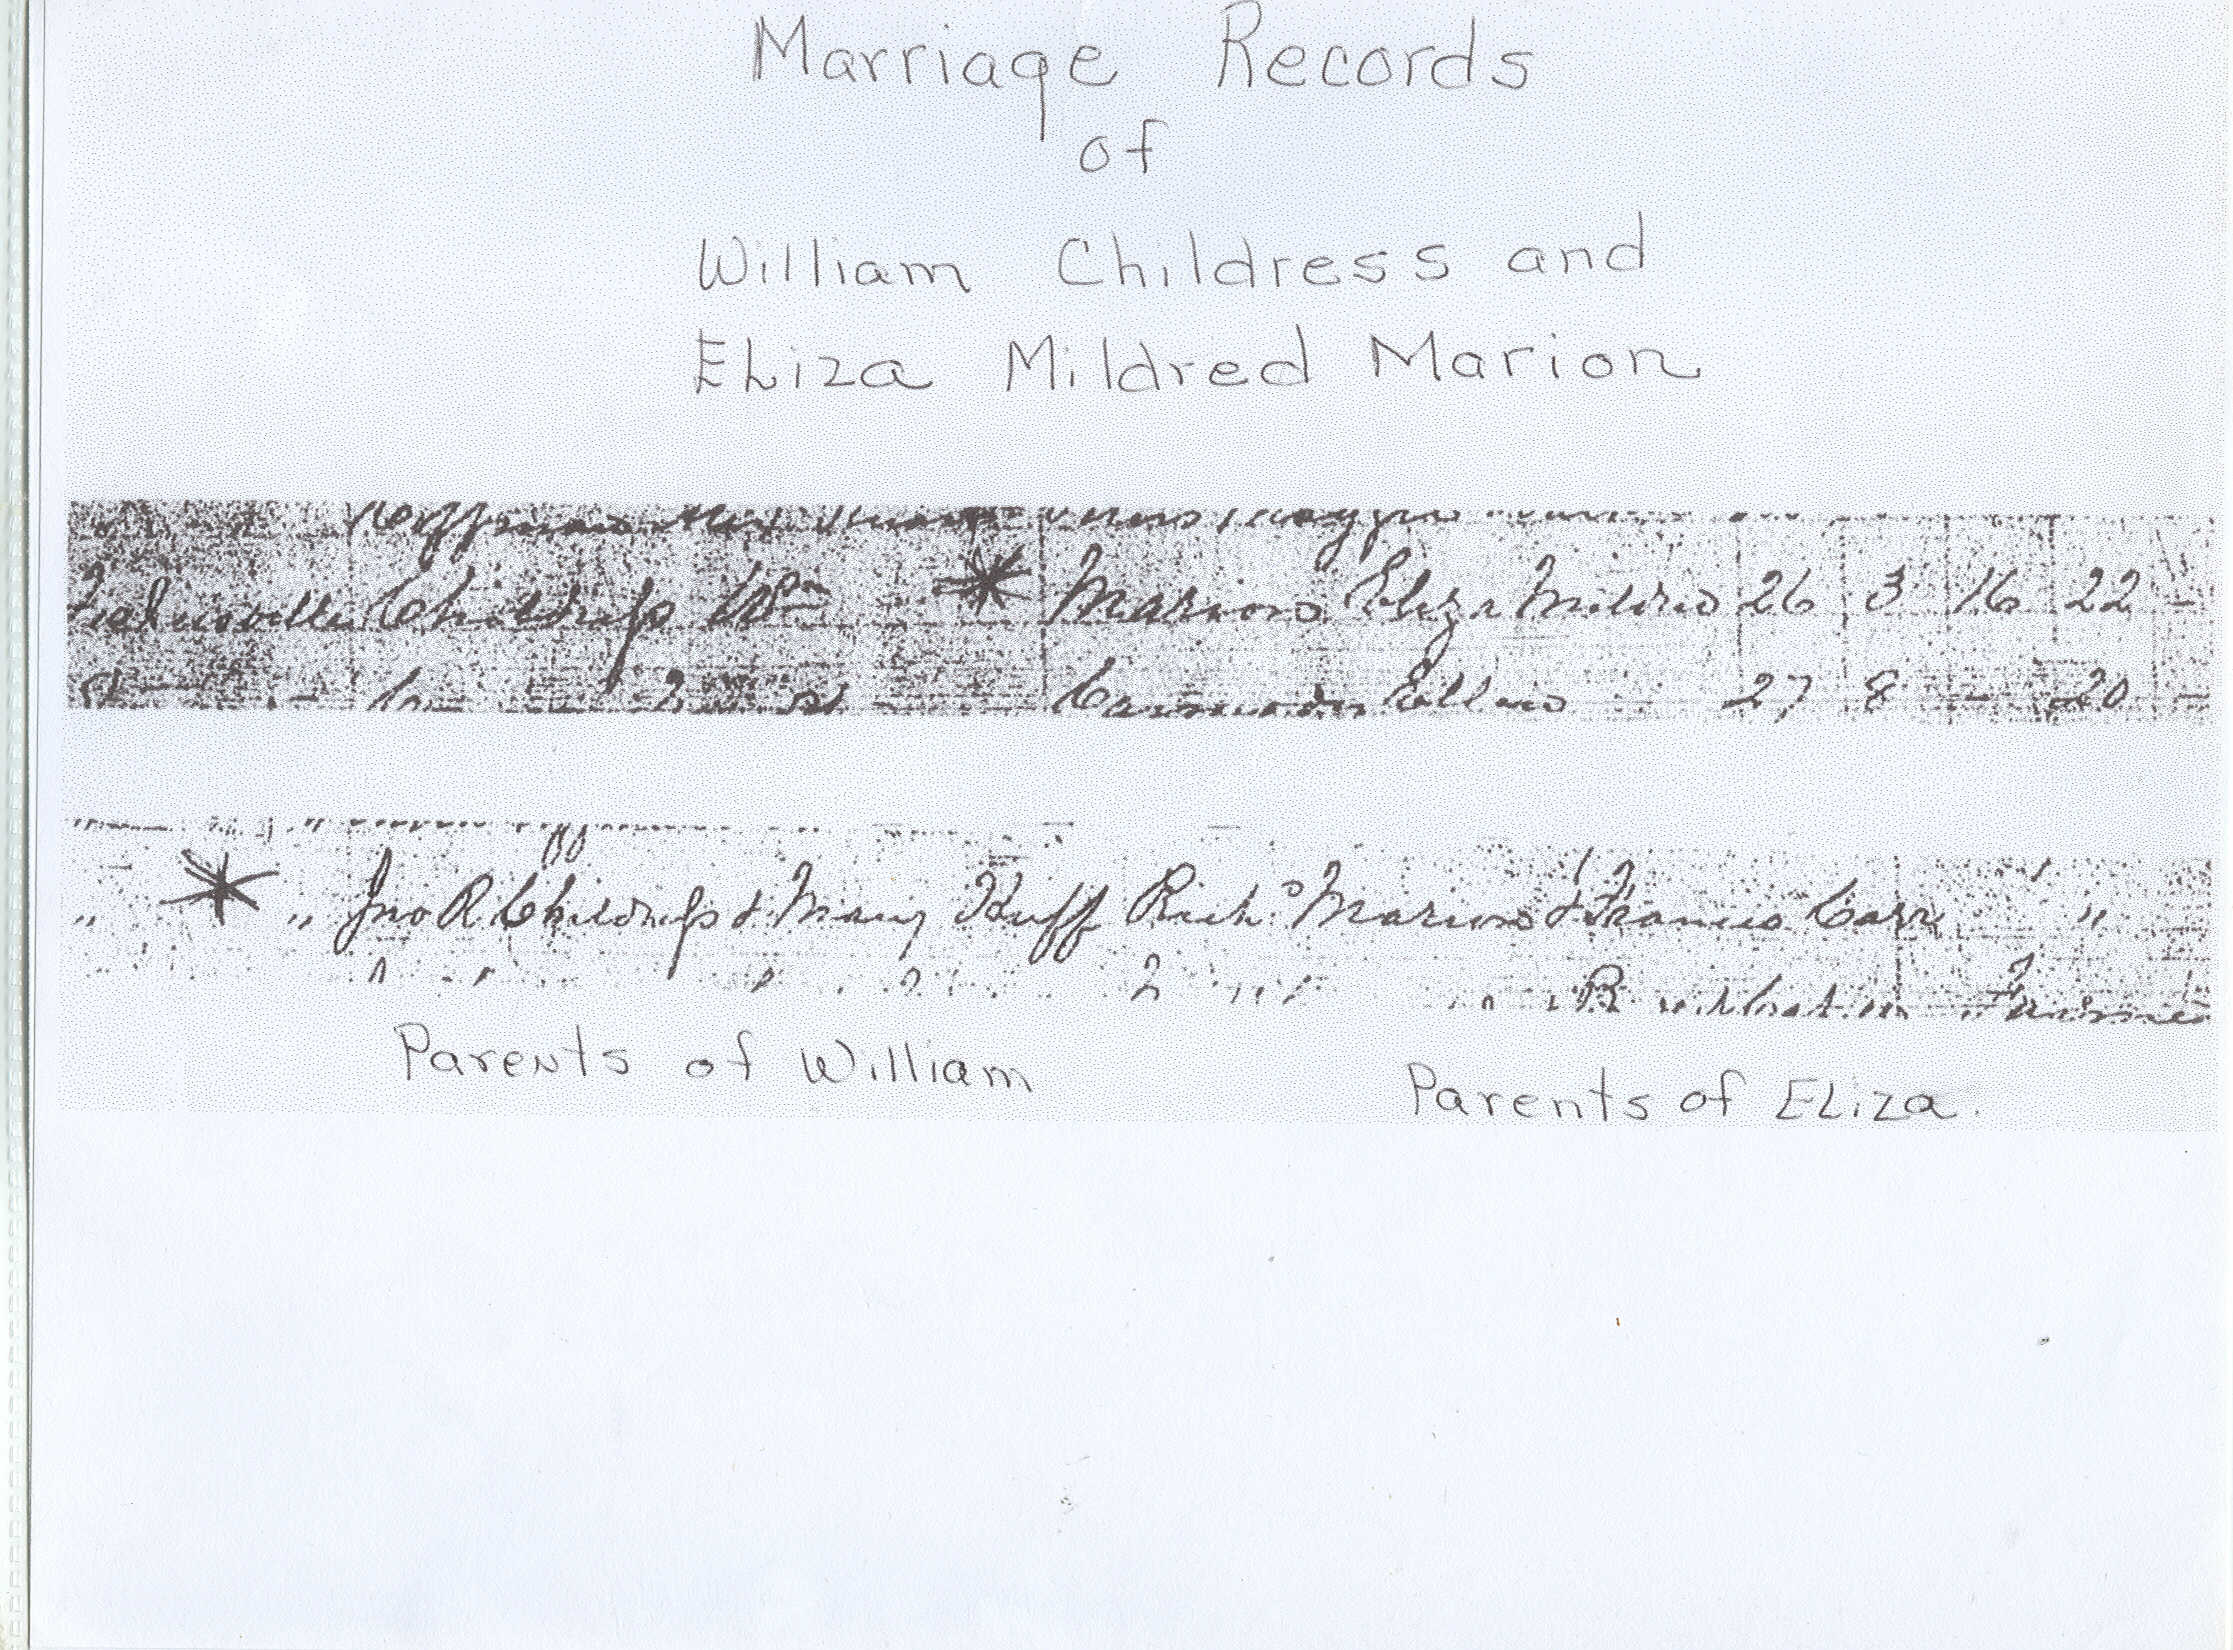 Marriage Records
of
William Childress and
Eliza Mildred Marion
Childress Wm Marion Eliza Mildred 26 3 16 22 -
Ellen 27 8 - 20 -
" " Jno R Childress & Mary Huff Richd Marion & Frances Carr "
Parents of William
Parents of Eliza.